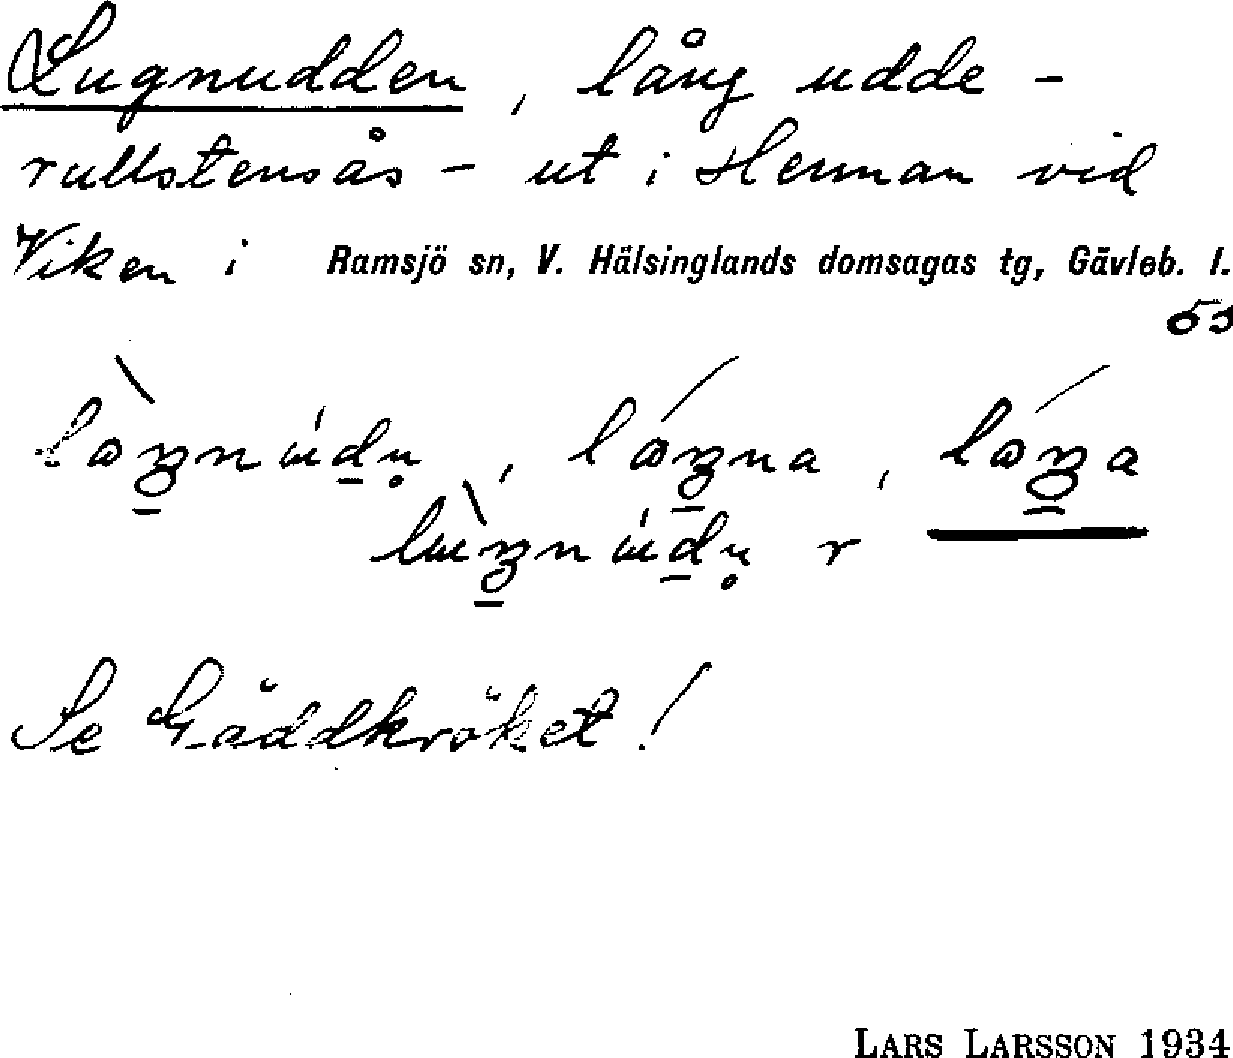 Lugnudden, lång udde -
rullstensås - ut i Hennan vid
Viken i Ramsjö sn, V. Hälsinglands domsagas tg, Gävleb. l.
Se Gäddkröket!
LARS LARSSON 1934